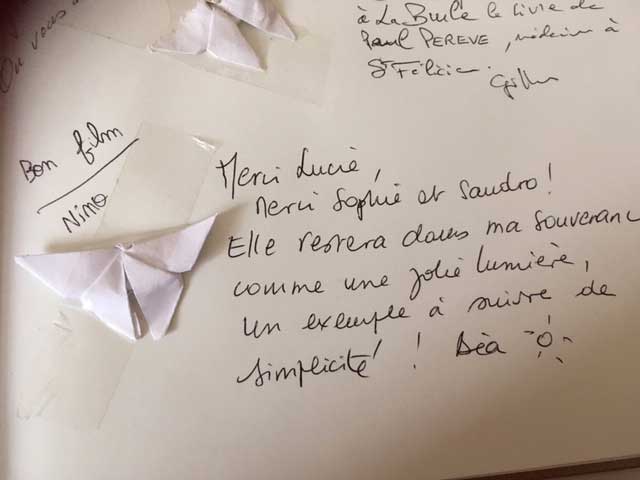 Ou vous
à La Burle le livre de
Paul PEREVE, médecin à
St Félicien.
Bon film
Nino
Merci Lucie,
Merci Sophie et Sandro !
Elle restera dans ma souvenanc
comme une jolie lumière,
un exemple à suivre de
simplicité ! Béa